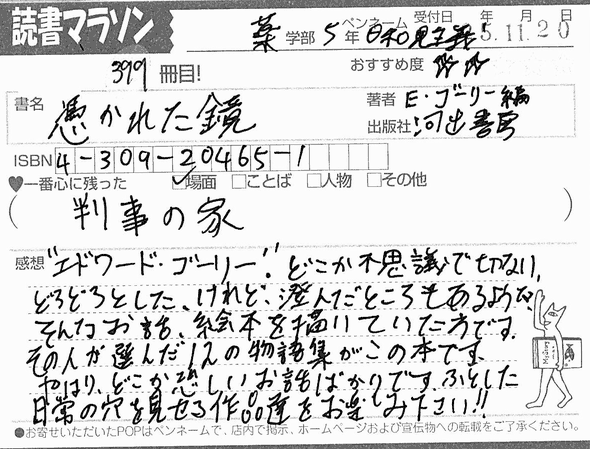 読書マラソン
ペンネーム 受付日 年 月 日
薬 学部 5 年 日和見 5.11.20
399 冊目! おすすめ度
書名 憑かれた鏡
著者 E・ゴーリー編
出版社 河出書房
ISBN 4-309-20465-1
♥一番心に残った ☑場面 □ことば □人物 □その他
(判事の家)
感想 "エドワード・ゴーリー"。どこか不思議で切ない、
どろどろとした、けれど、澄んだところもあるような、
そんなお話、絵本を描いていた方です。
その人が選んだ12の物語集がこの本です。
やはり、どこか恐しいお話ばかりです。ふとした
日常の穴を見せる作品達をお楽しみ下さい!!
●お寄せいただいたPOPはペンネームで、店内で掲示、ホームページおよび宣伝物への転載をご了承ください。